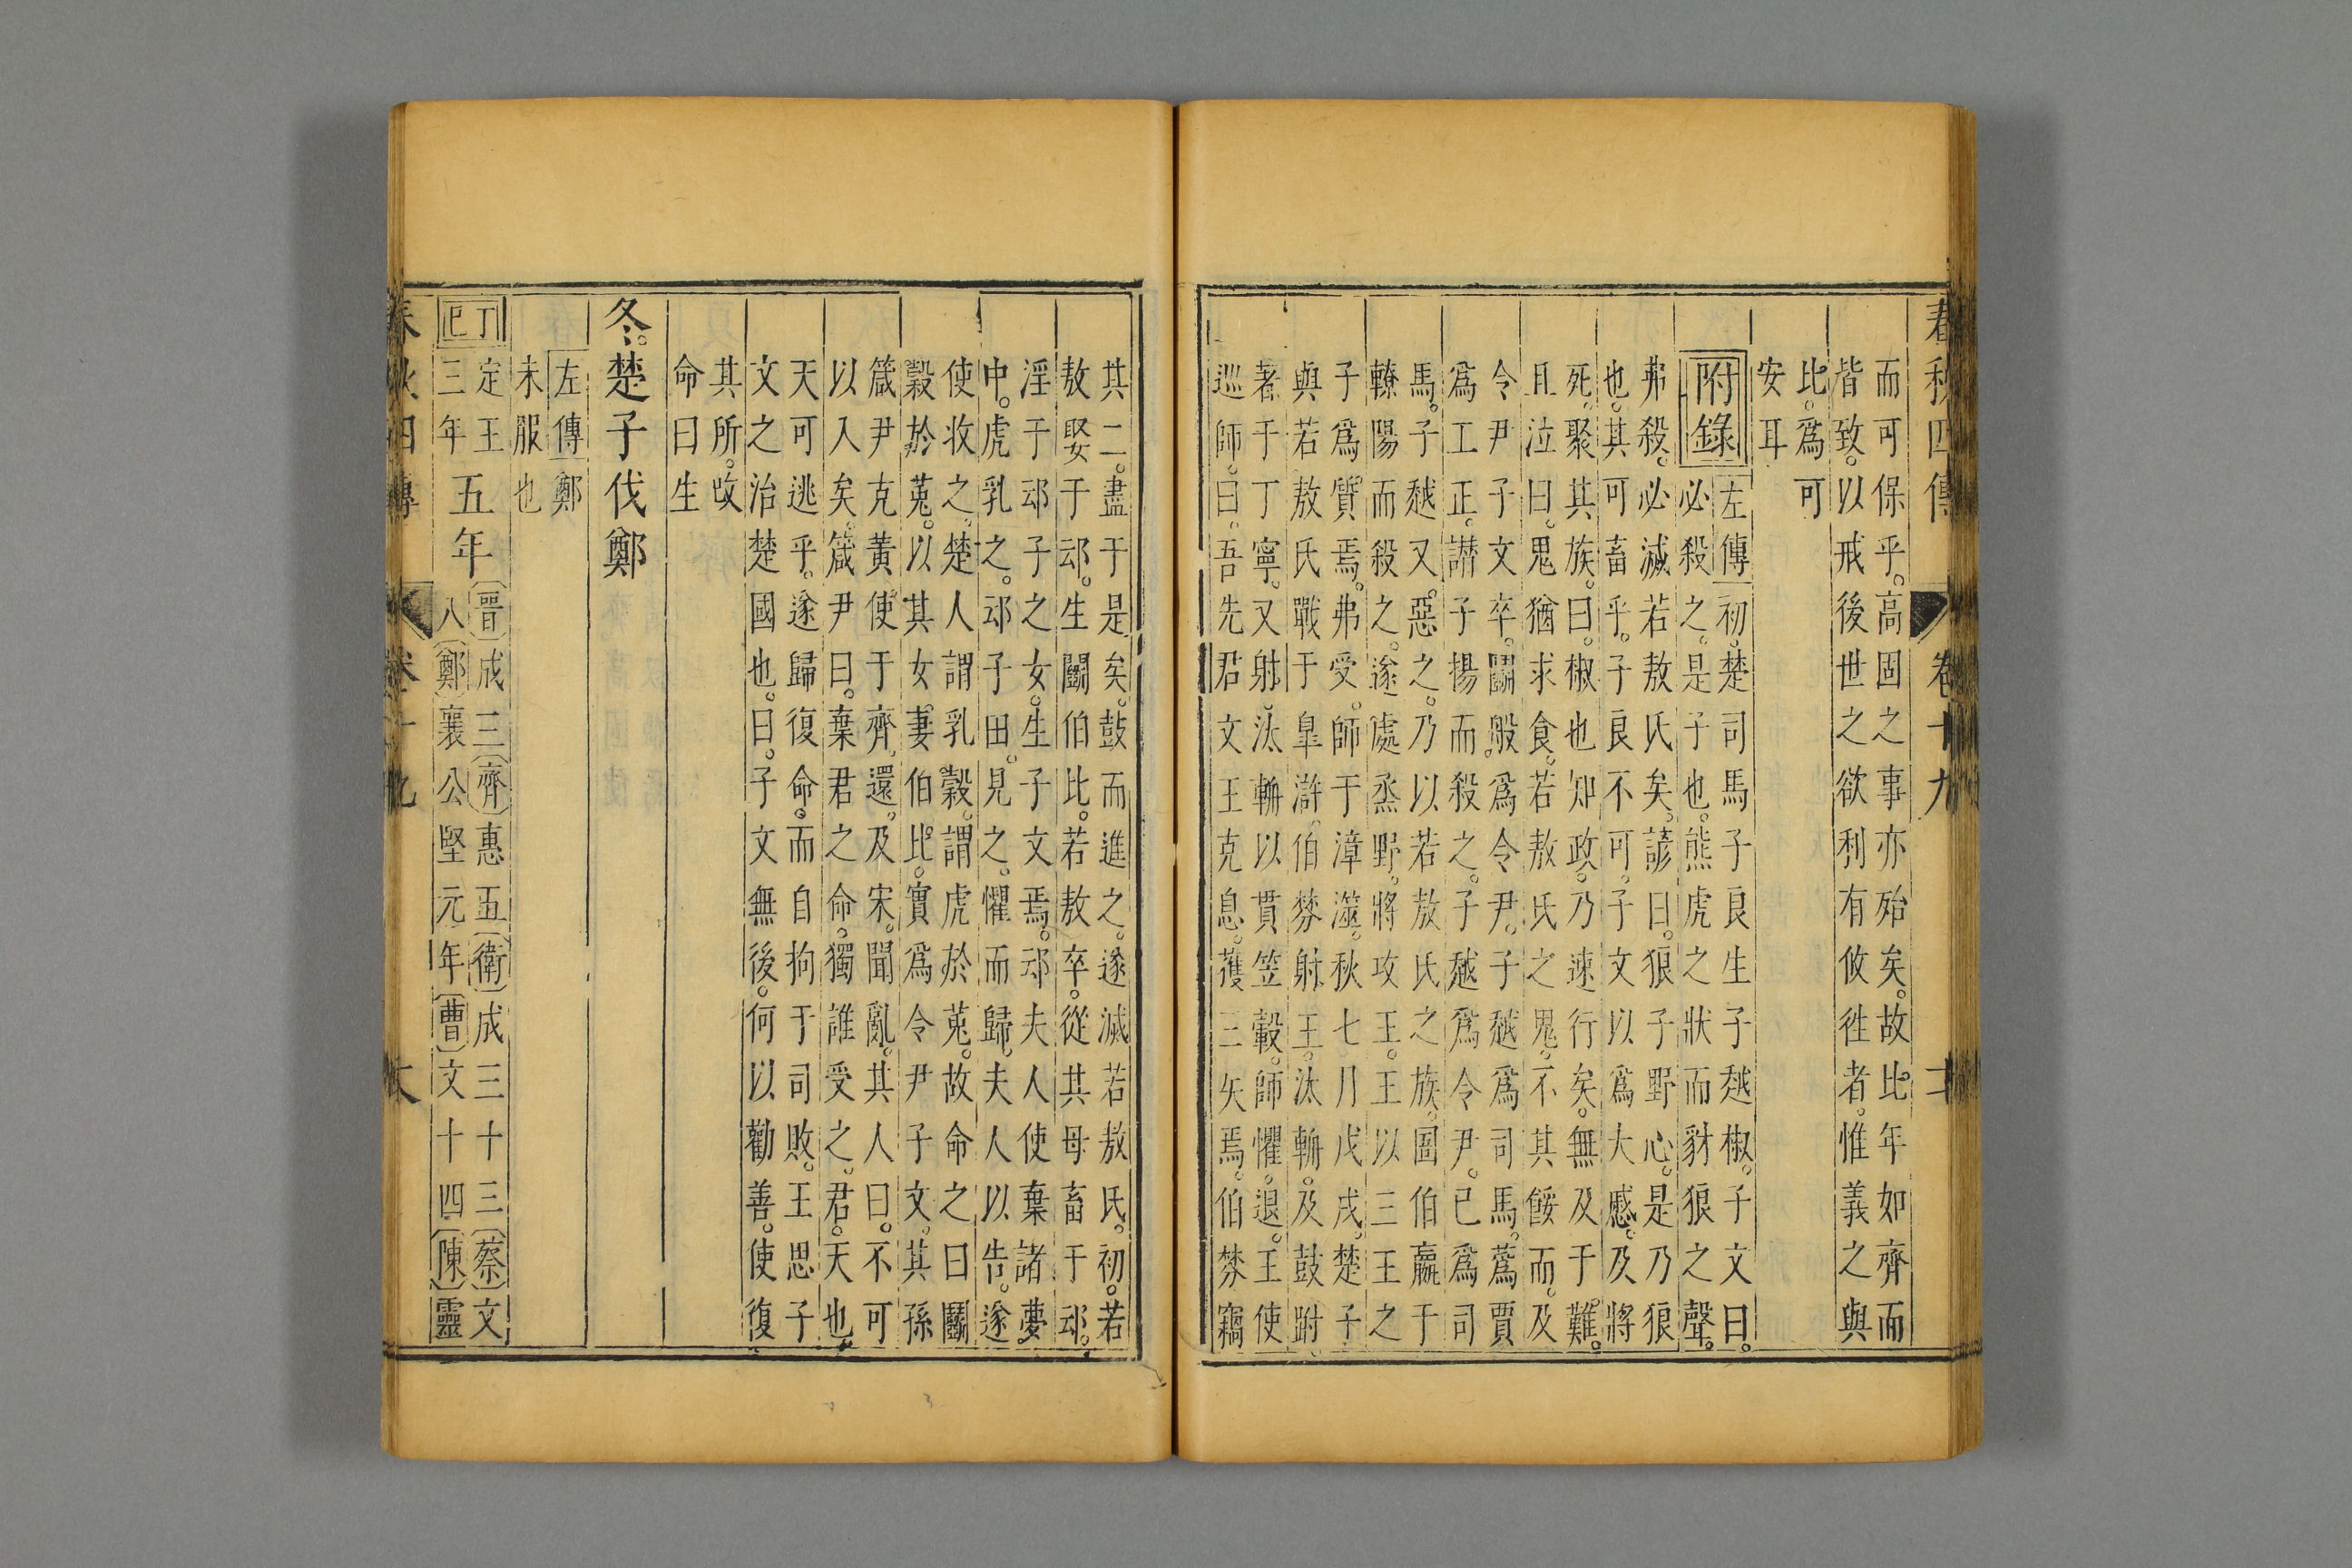 春秋四傳 卷十九
而可保乎。高固之事亦殆矣。故比年如齊而
皆致。以戒後世之欲利有攸徃者。惟義之與
比。爲可
安耳
附錄
左傳初。楚司馬子良生子越椒。子文曰。
必殺之。是子也。熊虎之狀而豺狼之聲。
弗殺。必滅若敖氏矣。諺曰。狼子野心。是乃狼
也。其可畜乎。子良不可。子文以爲大慼。及將
死。聚其族。曰。椒也知政。乃速行矣。無及于難。
且泣曰。鬼猶求食。若敖氏之鬼。不其餒而。及
令尹子文卒。鬭般爲令尹。子越爲司馬。蒍賈
爲工正。譖子揚而殺之。子越爲令尹。已爲司
馬。子越又惡之。乃以若敖氏之族。圄伯嬴于
轑陽而殺之。遂處烝野。將攻王。王以三王之
子爲質焉。弗受。師于漳澨。秋七月戊戌。楚子
與若敖氏戰于皐滸。伯棼射王。汰輈。及鼓跗
著于丁寧。又射。汰輈以貫笠轂。師懼。退。王使
巡師。曰。吾先君文王克息。獲三矢焉。伯棼竊
其二。盡于是矣。鼓而進之。遂滅若敖氏。初。若
敖娶于䢵。生鬭伯比。若敖卒。從其母畜于䢵。
淫于䢵子之女。生子文焉。䢵夫人使棄諸夢
中。虎乳之。䢵子田。見之。懼而歸。夫人以告。遂
使收之。楚人謂乳穀。謂虎於菟。故命之曰鬭
穀於菟。以其女妻伯比。實爲令尹子文。其孫
箴尹克黃使于齊。還。及宋。聞亂。其人曰。不可
以入矣。箴尹曰。棄君之命。獨誰受之。君。天也
天可逃乎。遂歸復命。而自拘于司敗。王思子
文之治楚國也。曰。子文無後。何以勸善。使復
其所。改
命曰生
冬。楚子伐鄭
左傳鄭
未服也
丁巳
定王
三年
五年
晉成三齊惠五衛成三十三蔡文
八鄭襄公堅元年曹文十四陳靈
春秋四傳 卷十九